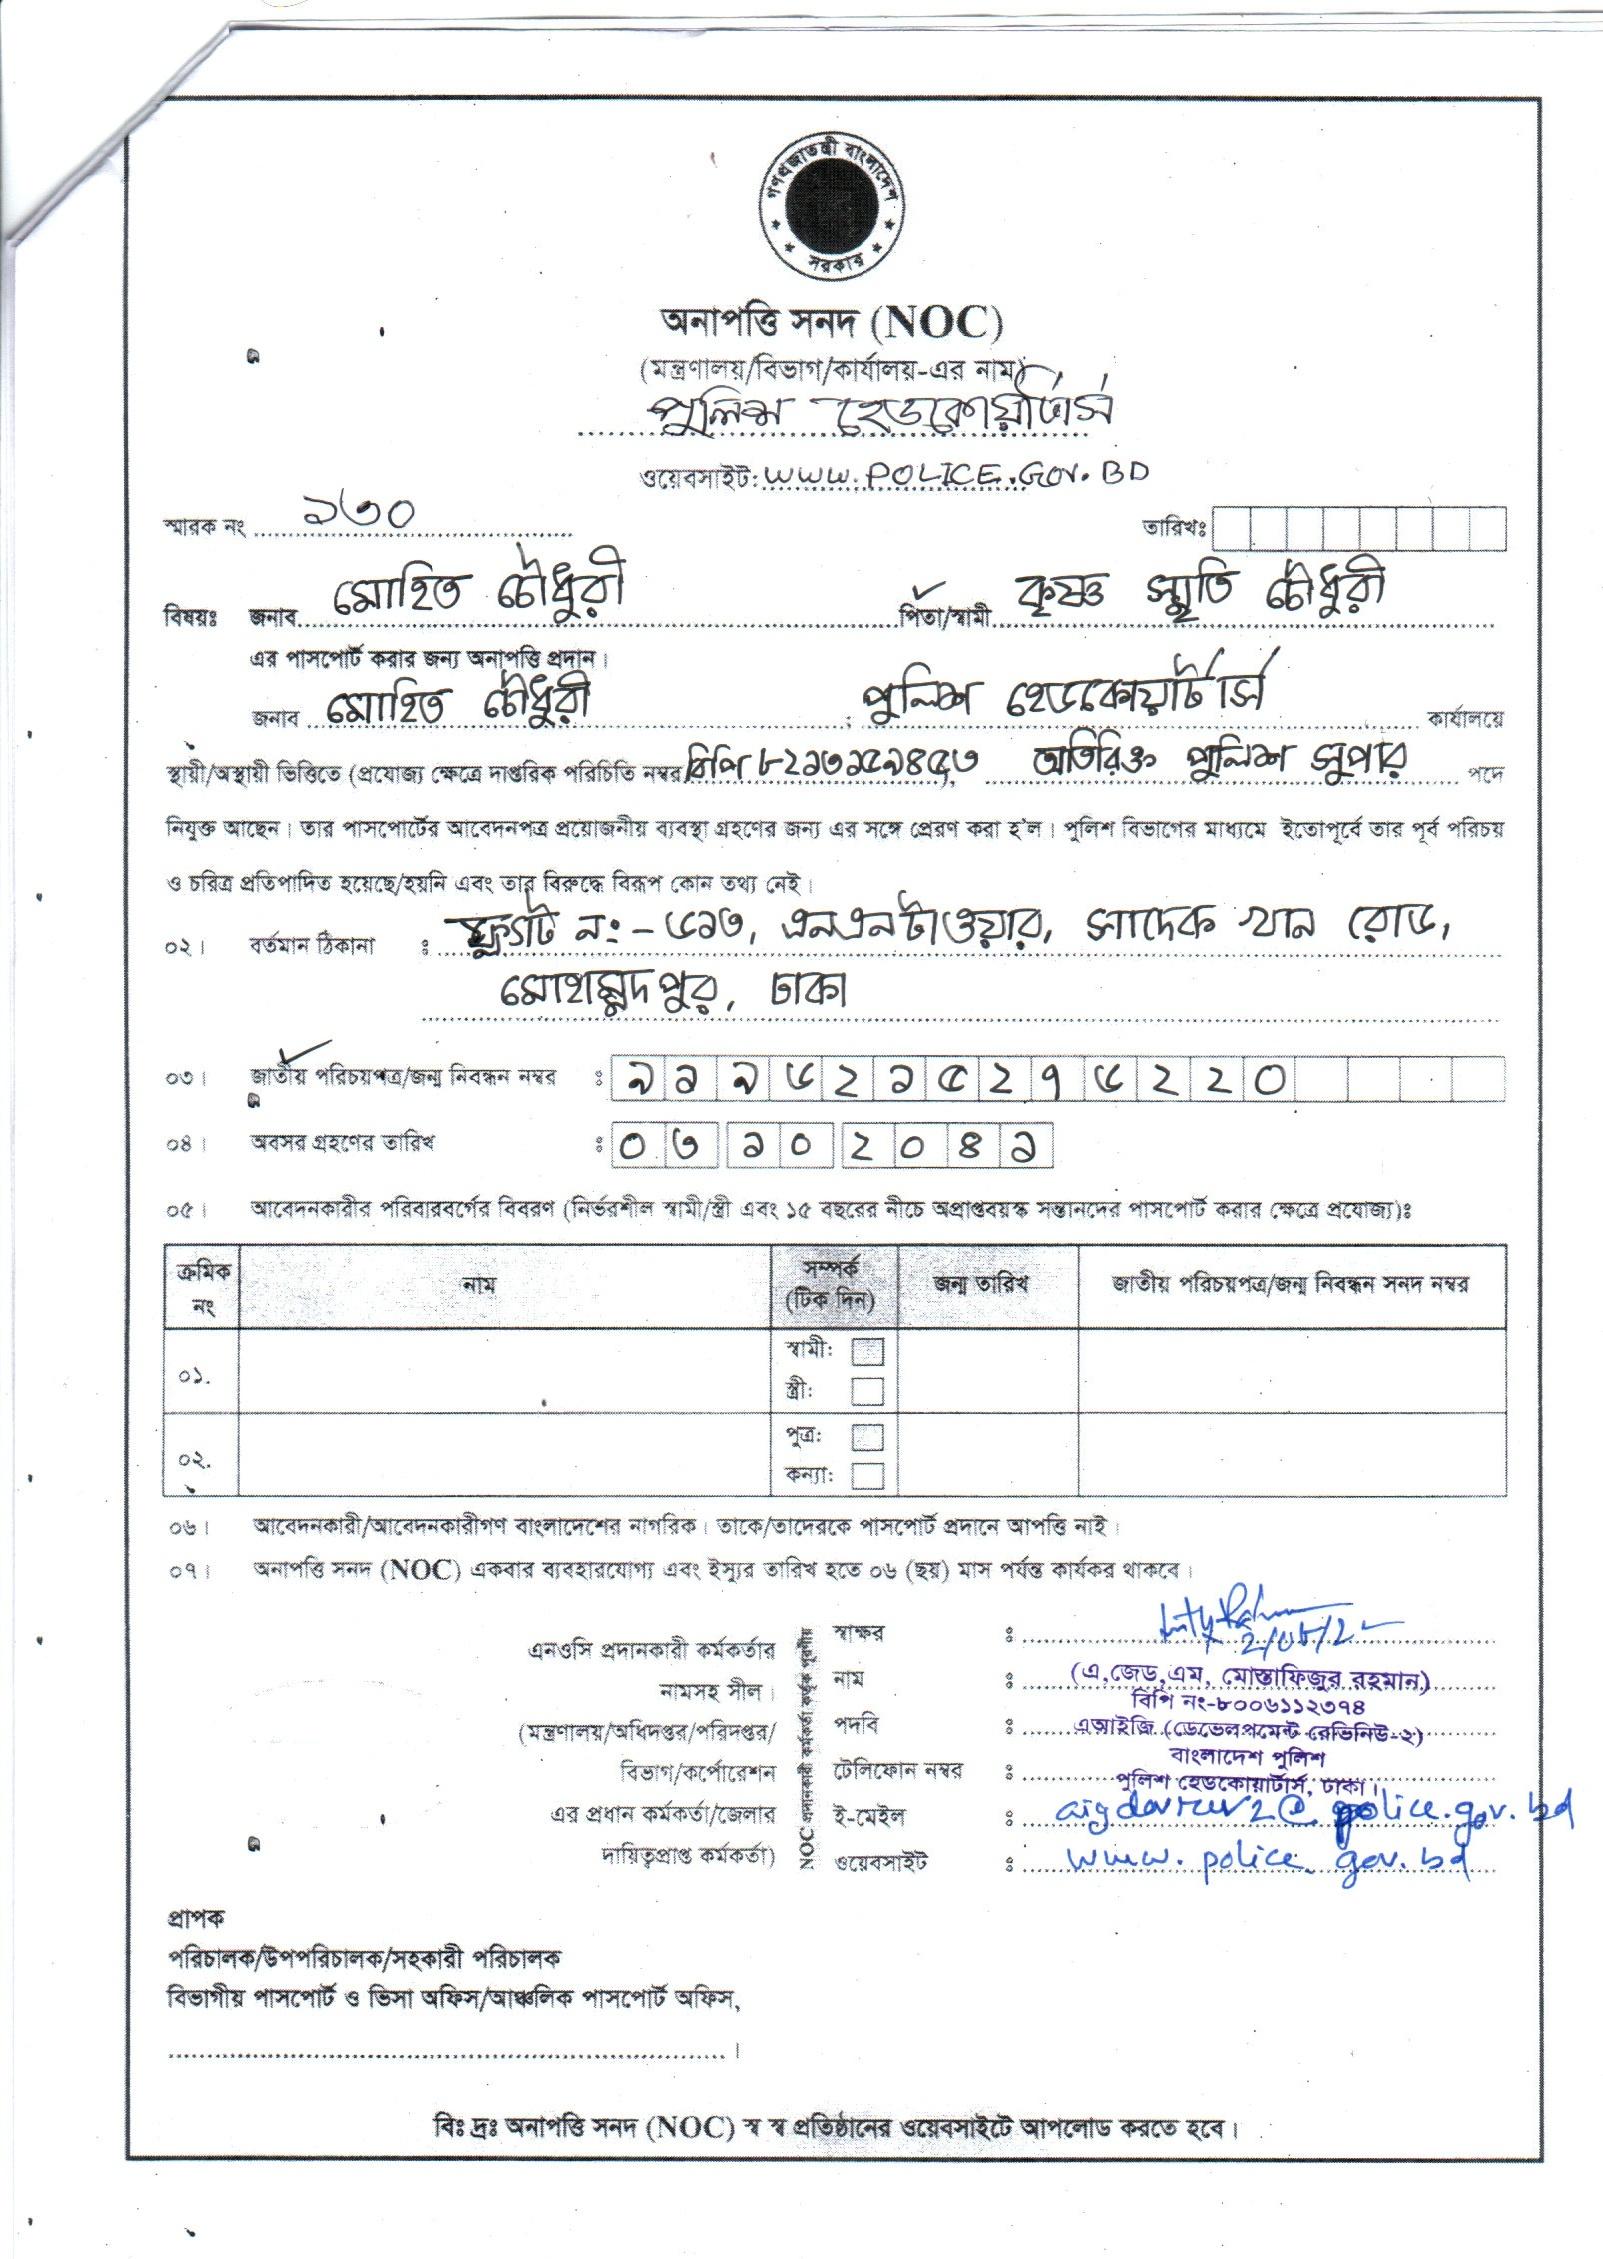 গণপ্রজাতন্ত্রী বাংলাদেশ
সরকার
অনাপত্তি সনদ (NOC)
(মন্ত্রণালয়/বিভাগ/কার্যালয়-এর নাম)
পুলিশ হেডকোয়ার্টার্স
ওয়েবসাইট: WWW.POLICE.GOV.BD
স্মারক নং ১৩০
তারিখঃ
বিষয়ঃ জনাব মোহিত চৌধুরী পিতা/স্বামী কৃষ্ণ স্মৃতি চৌধুরী
এর পাসপোর্ট করার জন্য অনাপত্তি প্রদান।
জনাব মোহিত চৌধুরী ; পুলিশ হেডকোয়ার্টার্স কার্যালয়ে
স্থায়ী/অস্থায়ী ভিত্তিতে (প্রযোজ্য ক্ষেত্রে দাপ্তরিক পরিচিতি নম্বর বিপি ৮২১৩১৫৯৪৫৩), অতিরিক্ত পুলিশ সুপার পদে
নিযুক্ত আছেন। তার পাসপোর্টের আবেদনপত্র প্রয়োজনীয় ব্যবস্থা গ্রহণের জন্য এর সঙ্গে প্রেরণ করা হ'ল। পুলিশ বিভাগের মাধ্যমে ইতোপূর্বে তার পূর্ব পরিচয়
ও চরিত্র প্রতিপাদিত হয়েছে/হয়নি এবং তার বিরুদ্ধে বিরূপ কোন তথ্য নেই।
০২। বর্তমান ঠিকানা : ফ্ল্যাট নং:- ৬১৩, এনএনটাওয়ার, সাদেক খান রোড,
মোহাম্মদপুর, ঢাকা
০৩। জাতীয় পরিচয়পত্র/জন্ম নিবন্ধন নম্বর : ৯১৯৬২১৫২৭৬২২০
০৪। অবসর গ্রহণের তারিখ : ০৩ ১০ ২০৪১
০৫। আবেদনকারীর পরিবারবর্গের বিবরণ (নির্ভরশীল স্বামী/স্ত্রী এবং ১৫ বছরের নীচে অপ্রাপ্তবয়স্ক সন্তানদের পাসপোর্ট করার ক্ষেত্রে প্রযোজ্য)ঃ
ক্রমিক নং নাম সম্পর্ক (টিক দিন) জন্ম তারিখ জাতীয় পরিচয়পত্র/জন্ম নিবন্ধন সনদ নম্বর
০১. স্বামী:
স্ত্রী:
০২. পুত্র:
কন্যা:
০৬। আবেদনকারী/আবেদনকারীগণ বাংলাদেশের নাগরিক। তাকে/তাদেরকে পাসপোর্ট প্রদানে আপত্তি নাই।
০৭। অনাপত্তি সনদ (NOC) একবার ব্যবহারযোগ্য এবং ইস্যুর তারিখ হতে ০৬ (ছয়) মাস পর্যন্ত কার্যকর থাকবে।
এনওসি প্রদানকারী কর্মকর্তার
নামসহ সীল।
(মন্ত্রণালয়/অধিদপ্তর/পরিদপ্তর/
বিভাগ/কর্পোরেশন
এর প্রধান কর্মকর্তা/জেলার
দায়িত্বপ্রাপ্ত কর্মকর্তা)
NOC প্রদানকারী কর্মকর্তা কর্তৃক পূরণীয়
স্বাক্ষর ঃ
নাম ঃ (এ,জেড,এম, মোস্তাফিজুর রহমান)
বিপি নং-৮০০৬১১২৩৭৪
পদবি ঃ এআইজি (ডেভেলপমেন্ট রেভিনিউ-২)
বাংলাদেশ পুলিশ
টেলিফোন নম্বর ঃ পুলিশ হেডকোয়ার্টার্স, ঢাকা।
ই-মেইল ঃ aigdevrev2@police.gov.bd
ওয়েবসাইট ঃ www.police.gov.bd
প্রাপক
পরিচালক/উপপরিচালক/সহকারী পরিচালক
বিভাগীয় পাসপোর্ট ও ভিসা অফিস/আঞ্চলিক পাসপোর্ট অফিস,
বিঃ দ্রঃ অনাপত্তি সনদ (NOC) স্ব স্ব প্রতিষ্ঠানের ওয়েবসাইটে আপলোড করতে হবে।